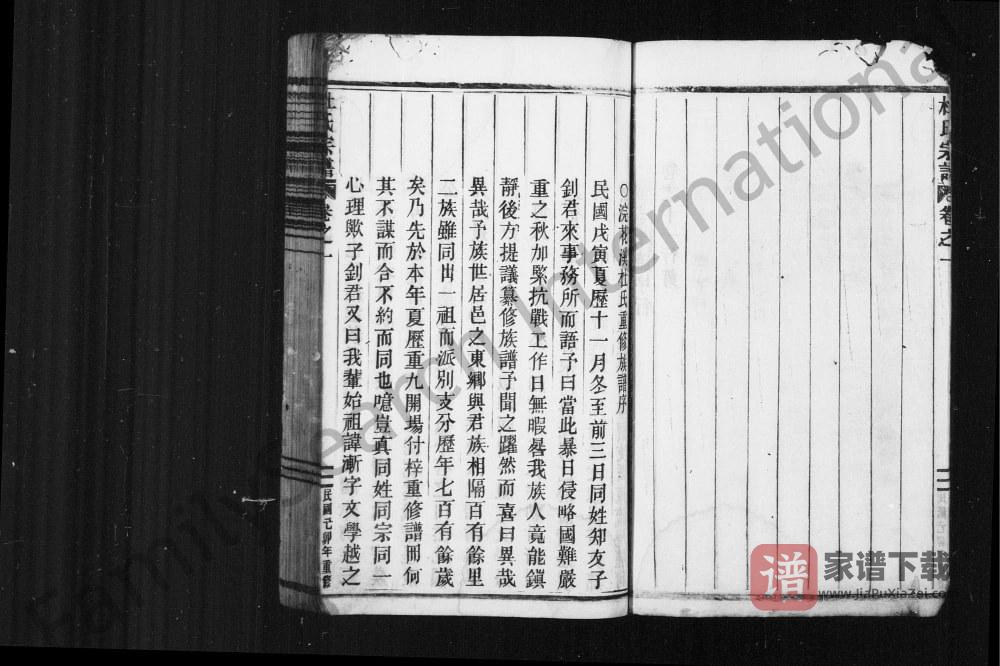 杜氏宗譜
卷之一
○浣花溪杜氏重修族譜序
民國戊寅夏歷十一月冬至前三日同姓知友子
釗君來事務所而語予曰當此暴日侵略國難嚴
重之秋加緊抗戰工作日無暇晷我族人竟能鎮
靜後方提議纂修族譜予聞之躍然而喜曰異哉
異哉予族世居邑之東鄉與君族相隔百有餘里
二族雖同出一祖而派別支分歷年七百有餘歲
矣乃先於本年夏歷重九開場付梓重修譜冊何
其不謀而合不約而同也噫豈真同姓同宗同一
心理歟子釗君又曰我輩始祖諱漸字文學越之
杜氏宗譜
卷之一
民國己卯年重修
FamilySearch International
譜
家谱下载
www.JiaPuXiaZai.com